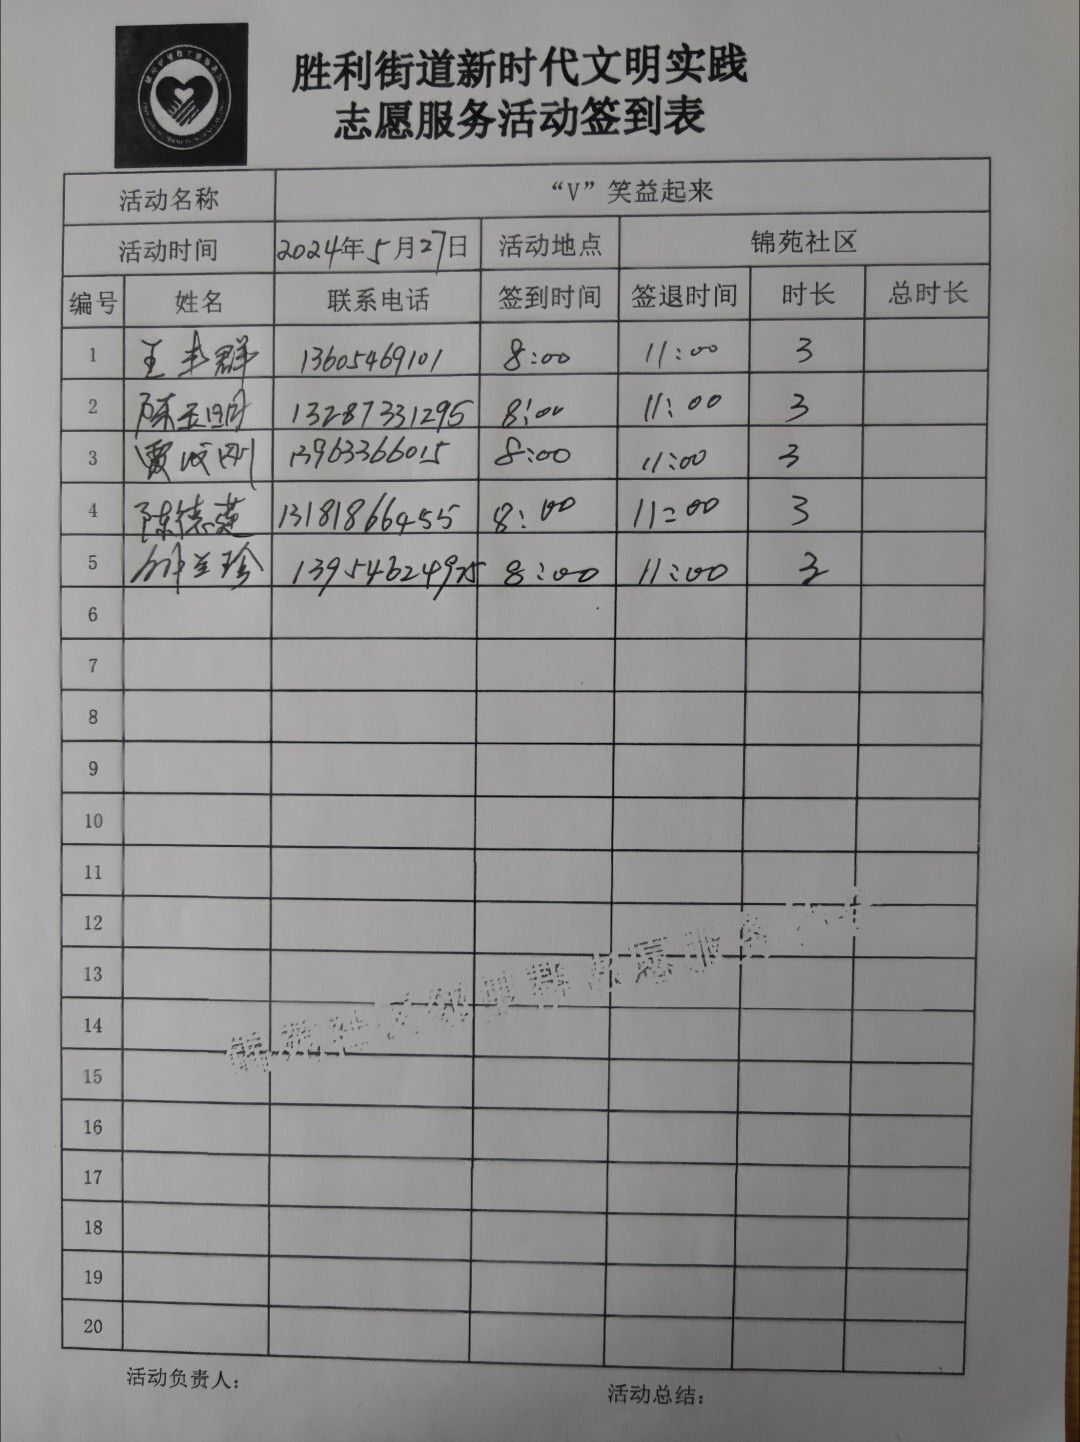 胜利街道新时代文明实践
志愿服务活动签到表
活动名称 “V”笑益起来
活动时间 2024年5月27日 活动地点 锦苑社区
编号 姓名 联系电话 签到时间 签退时间 时长 总时长
1 王 群 13605469101 8:00 11:00 3
2 陈玉 13287331295 8:00 11:00 3
3 贾 刚 13963366015 8:00 11:00 3
4 陈德莲 13181866455 8:00 11:00 3
5 兰珍 13954624975 8:00 11:00 3
6
7
8
9
10
11
12
13
14
15
16
17
18
19
20
活动负责人： 活动总结：